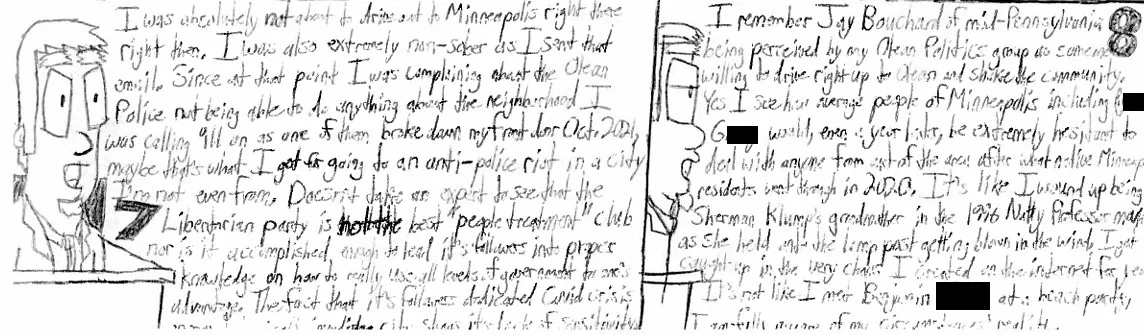 I was absolutely not about to drive out to Minneapolis right there
right then. I was also extremely non-sober as I sent that
email. Since at that point I was complaining about the Olean
Police not being able to do anything about the neighborhood I
was calling 'ill on as one of them broke down my front door Oct. 2021,
maybe that's what I got for going to an anti-police riot in a city
I'm not even from. Doesn't take an expert to see that the
Libertarian party is best "people treatment" club
nor is it accomplished, enough to lead it's followers into proper
knowledge on how to really use all levels of government to one's
advantage. The fact that it's followers dedicated Covid crisis
it's lack of sensitivity
17
I remember Jay Bouchard of mid-Pennsylvania
being perceived by my Olean Politics group as someone
willing to drive right up to Olean and shake the community.
Yes I see how average people of Minneapolis including
G would, even a year later, be extremely hesitant to
deal with anyone from out of the area after what native
residents went through in 2020. It's like I wound up being
Sherman Klump's grandmother in the 1996 Nutty Professor
as she held onto the lamp past getting blown in the wind. I got
caught up in the very chaos I created on the internet for
It's not like I met Benjamin at a beach party,
I am fully aware of my reality.
8